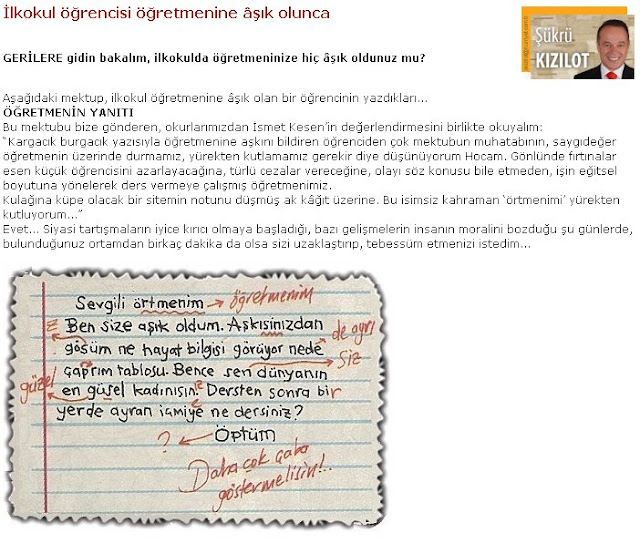 İlkokul öğrencisi öğretmenine âşık olunca
Şükrü
KIZILOT
GERİLERE gidin bakalım, ilkokulda öğretmeninize hiç âşık oldunuz mu?
Aşağıdaki mektup, ilkokul öğretmenine âşık olan bir öğrencinin yazdıkları...
ÖĞRETMENİN YANITI
Bu mektubu bize gönderen, okurlarımızdan İsmet Kesen'in değerlendirmesini birlikte okuyalım:
"Kargacık burgacık yazısıyla öğretmenine aşkını bildiren öğrenciden çok mektubun muhatabının, saygıdeğer
öğretmenin üzerinde durmamız, yürekten kutlamamız gerekir diye düşünüyorum Hocam. Gönlünde fırtınalar
esen küçük öğrencisini azarlayacağına, türlü cezalar vereceğine, olayı söz konusu bile etmeden, işin eğitsel
boyutuna yönelerek ders vermeye çalışmış öğretmenimiz.
Kulağına küpe olacak bir sitemin notunu düşmüş ak kâğıt üzerine. Bu isimsiz kahraman 'örtmenimi' yürekten
kutluyorum..."
Evet... Siyasi tartışmaların iyice kırıcı olmaya başladığı, bazı gelişmelerin insanın moralini bozduğu şu günlerde,
bulunduğunuz ortamdan birkaç dakika da olsa sizi uzaklaştırıp, tebessüm etmenizi istedim...
Sevgili örtmenim → öğretmenim
Ben size aşık oldum. Aşkısinızdan
gösüm ne hayat bilgisi görüyor nede de ayrı
çaprım tablosu. Bence sen dünyanın siz
güzel en güsel kadınısın. Dersten sonra bir
yerde ayran iamiye ne dersiniz?
? ← Öptüm
Daha çok çaba
göstermelisin!..